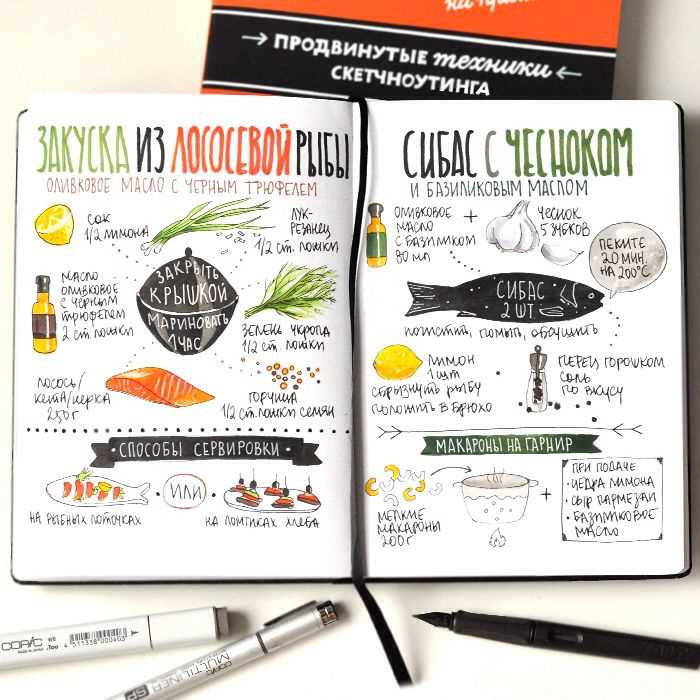 на
→ ПРОДВИНУТЫЕ техники ←
СКЕТЧНОУТИНГА
ЗАКУСКА ИЗ ЛОСОСЕВОЙ РЫБЫ
ОЛИВКОВОЕ МАСЛО С ЧЕРНЫМ ТРЮФЕЛЕМ
СОК
1/2 ЛИМОНА
ЛУК-
РЕЗАНЕЦ
1/2 СТ. ЛОЖКИ
МАСЛО
ОЛИВКОВОЕ
С ЧЕРНЫМ
ТРЮФЕЛЕМ
2 СТ. ЛОЖКИ
ЗАКРЫТЬ
КРЫШКОЙ
МАРИНОВАТЬ
1 ЧАС
ЗЕЛЕНЬ УКРОПА
1/2 СТ. ЛОЖКИ
ЛОСОСЬ/
КЕТА/НЕРКА
250 Г
ГОРЧИЦА
1/2 СТ. ЛОЖКИ СЕМЯН
СПОСОБЫ СЕРВИРОВКИ
ИЛИ
НА РЫБНЫХ ЛОТОЧКАХ
НА ЛОМТИКАХ ХЛЕБА
СИБАС С ЧЕСНОКОМ
И БАЗИЛИКОВЫМ МАСЛОМ
ОЛИВКОВОЕ
МАСЛО
С БАЗИЛИКОМ
80 МЛ
+
ЧЕСНОК
5 ЗУБКОВ
ПЕКИТЕ
20 МИН.
НА 200°С
СИБАС
2 ШТ
ПОЧИСТИТЬ, ПОМЫТЬ, ОБСУШИТЬ
ЛИМОН
1 ШТ
СБРЫЗНУТЬ РЫБУ
ПОЛОЖИТЬ В БРЮХО
ПЕРЕЦ ГОРОШКОМ
СОЛЬ
ПО ВКУСУ
МАКАРОНЫ НА ГАРНИР
МЕЛКИЕ
МАКАРОНЫ
200 Г
+
ПРИ ПОДАЧЕ
• ЦЕДРА ЛИМОНА
• СЫР ПАРМЕЗАН
• БАЗИЛИКОВОЕ
МАСЛО
COPIC
.Too
4 511338 000403
COPIC
MULTILINER SP